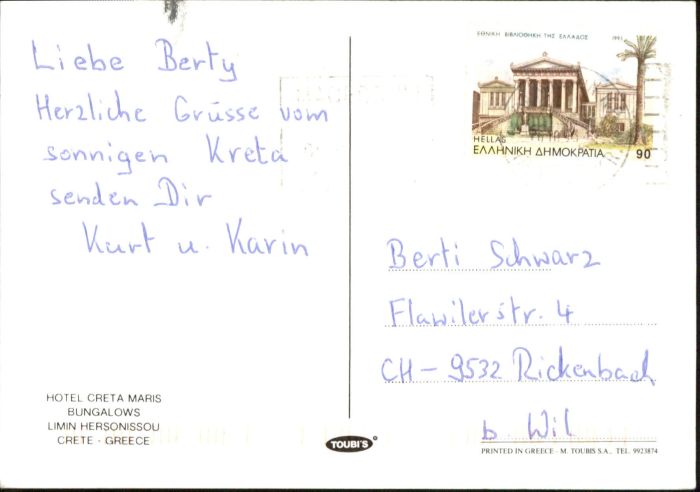 Liebe Berty
Herzliche Grüsse vom
sonnigen Kreta
senden Dir
Kurt u. Karin
HOTEL CRETA MARIS
BUNGALOWS
LIMIN HERSONISSOU
CRETE - GREECE
TOUBI'S
ΕΘΝΙΚΗ ΒΙΒΛΙΟΘΗΚΗ ΤΗΣ ΕΛΛΑΔΟΣ 1993
HELLAS
ΕΛΛΗΝΙΚΗ ΔΗΜΟΚΡΑΤΙΑ 90
Berti Schwarz
Flawilerstr. 4
CH - 9532 Rickenbach
b. Wil
PRINTED IN GREECE - M. TOUBIS S.A., TEL. 9923874